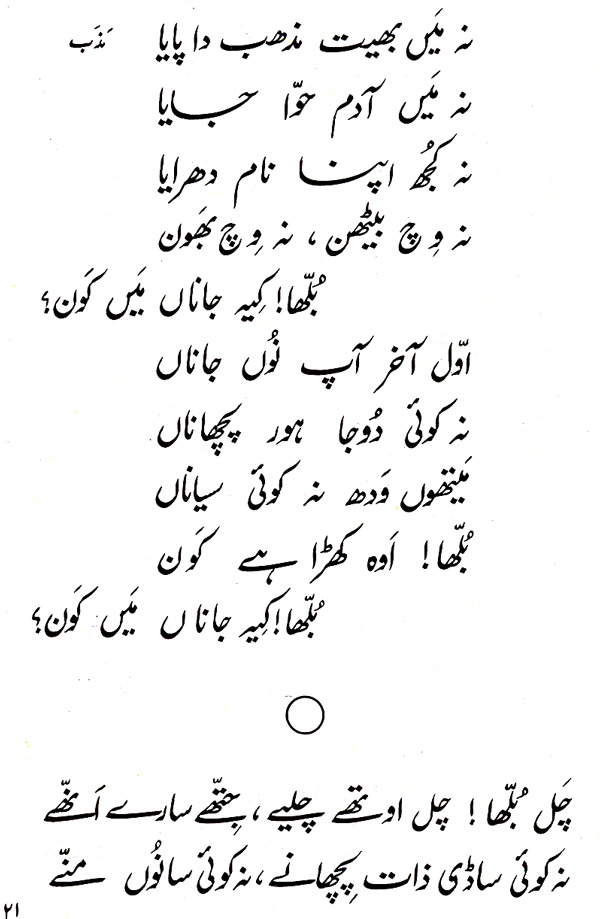 نہ مَیں بھیت مذھب دا پایا مَذہَب
نہ مَیں آدم حوّا جایا
نہ کُجُھ اپنا نام دھرایا
نہ وِچ بیٹھن، نہ وِچ بھَون
بُلّھا! کیِہ جاناں مَیں کَون؟
اوّل آخر آپ نُوں جاناں
نہ کوئی دُوجا ہور پچھاناں
مَیتھوں وَدھ نہ کوئی سیاناں
بُلّھا! اَوہ کھڑا ہے کَون
بُلّھا! کیِہ جاناں مَیں کَون؟
چَل بُلّھا! چل اوتھے چلیے، جِتھّے سارے اَنھّے
نہ کوئی ساڈی ذات پچھانے، نہ کوئی سانُوں منّے
۲۱